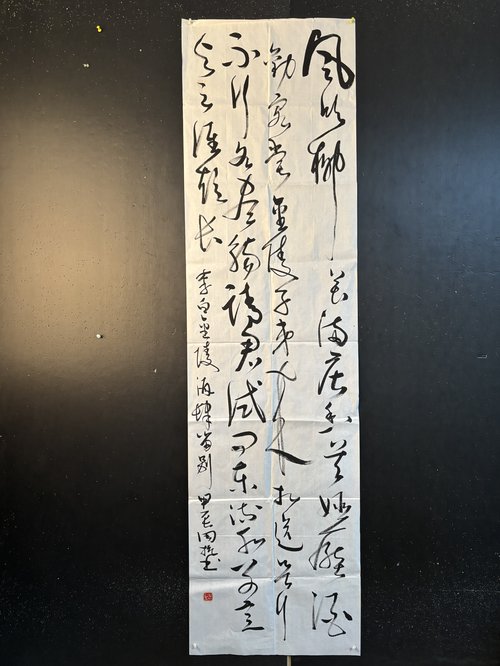 風吹柳花滿店香吳姬壓酒
勸客嘗金陵子弟來相送欲行
不行各盡觴請君試問東流水別意
與之誰短長 李白金陵酒肆留別 甲辰 書